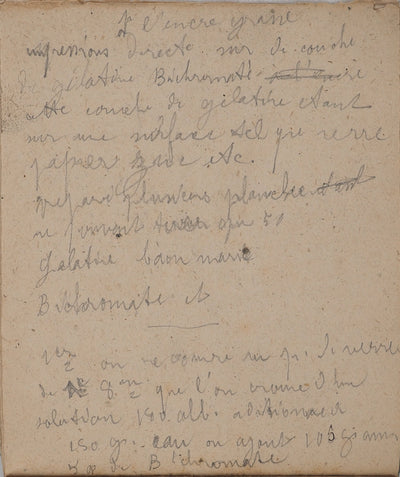 à l'encre grasse
impressions directe sur de couche
de gélatine Bichromaté
cette couche de gélatine etant
sur une surface tel que verre
papier zinc etc.
preparé plusieurs planche
ne pouvant tirer que 50
Gélatine bain marie
Bichromate
on recouvre un de verre
de que l'on couvre d'une
solution 100 alb. aditionner
150 gr. eau on ajout 100 gramme
de Bichromate